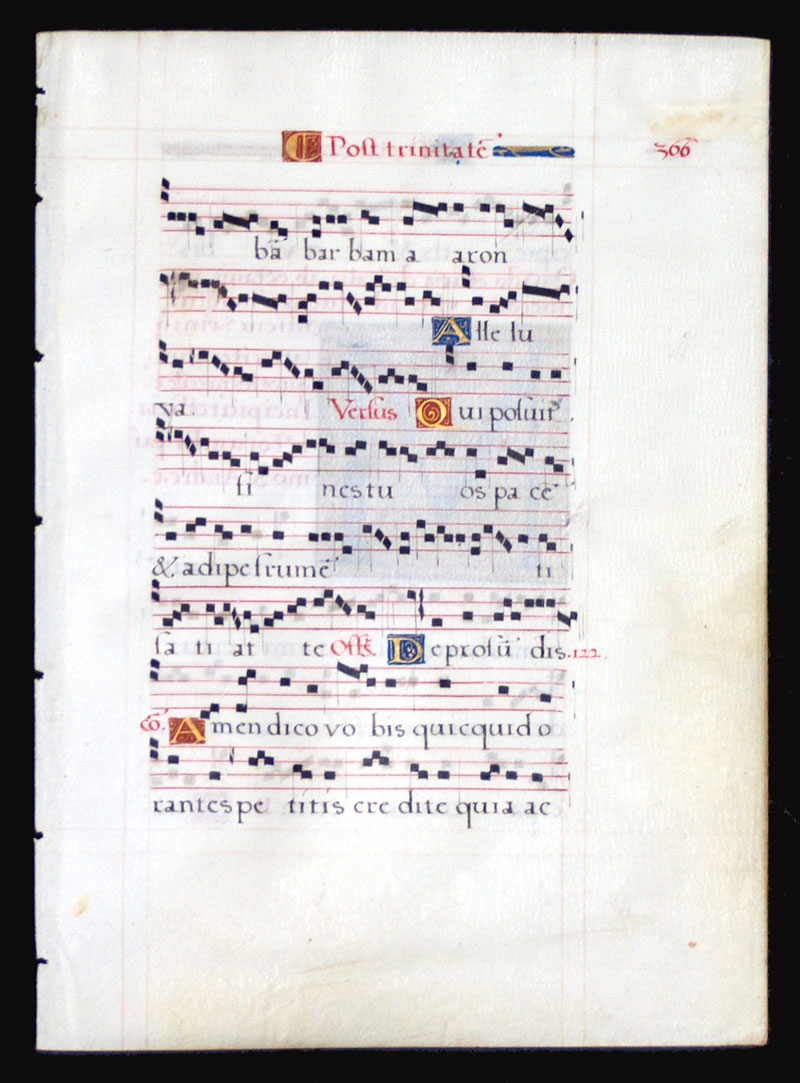 Post trinitatē 306
bā bar bam a aron
Alle lu
ya Versus Qui posuit
fi nes tu os pa cē
& adipe frumē ti
sa ti at te Offr. De profū dis. 122.
cō. Amen dico vo bis quicquid o
rantes pe titis cre dite quia ac